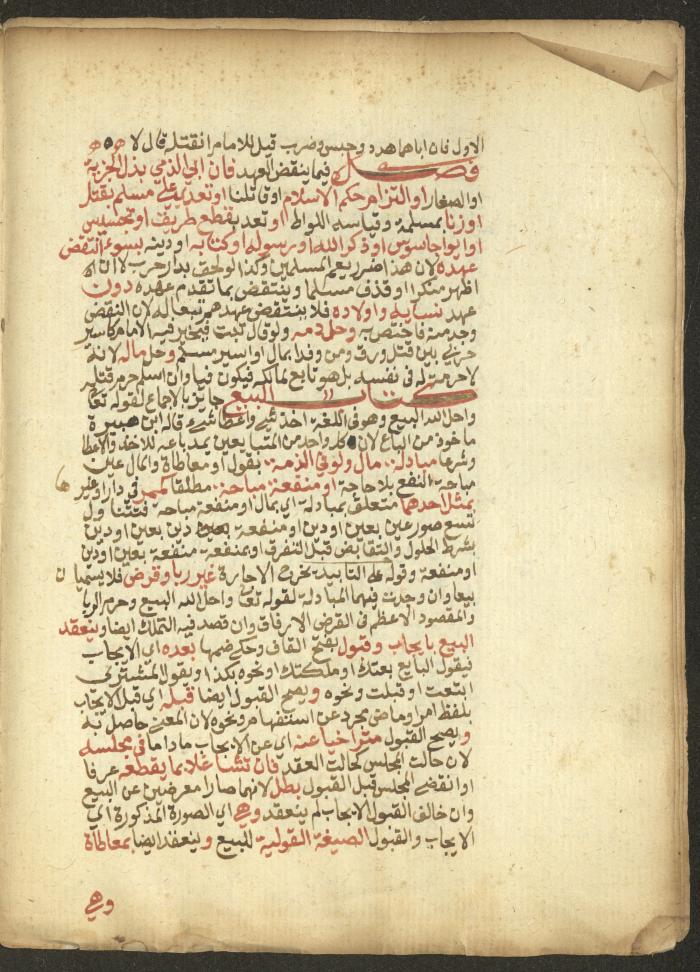 الاول فان اباهما هدده وحبس وضرب قيل للامام انقتله قال لا ه ه ه
فصل فيما ينقض العهد فان ابى الذمي بذل الجزية
او الصغار او التزام حكم الاسلام او قاتلنا او تعدى على مسلم بقتل
او زنا بمسلمة وقياسه اللواط او تعدى بقطع طريق او تجسيس
او ايواء جاسوس او ذكر الله او رسوله او كتابه او دينه بسوء انتقض
عهده لان هذا ضرر يعم المسلمين وكذا لو لحق بدار حرب لا ان
اظهر منكرا او قذف مسلما وينتقض بما تقدم عهده دون
عهد نسايه واولاده فلا ينتقض عهدهم تبعا له لان النقض
وجد منه فاختص به وحل دمه ولو قال تبت فيخير فيه الامام كاسير
حربي بين قتل ورق ومن وفدا بمال او اسير مسلم وحل ماله لانه
لا حرمة له في نفسه بل هو تابع لمالكه فيكون فيا وان اسلم حرم قتله
كتاب البيع جايز بالاجماع لقوله تعا
واحل الله البيع وهو في اللغة اخذ شي واعطا شي قاله ابن هبيرة
ماخوذ من الباع لان كل واحد من المتبايعين يمد باعه للاخذ والاعطا
وشرعا مبادلة مال ولو في الذمة بقول او معاطاة والمال عين
مباحة النفع بلا حاجة او منفعة مباحة مطلقا كممر في دار او غيرها
بمثل احدهما متعلق بمبادلة اي بمال او منفعة مباحة فتتناول
تسع صور عين بعين او دين او منفعة دين بعين او دين
بشرط الحلول والتقابض قبل التفرق او بمنفعة منفعة بعين او دين
او منفعة وقوله على التابيد يخرج الاجارة غير ربا وقرض فلا يسميان
بيعا وان وجدت فيهما المبادلة لقوله تعا واحل الله البيع وحرم الربا
والمقصود الاعظم في القرض الارفاق وان قصد فيه التملك ايضا وينعقد
البيع بايجاب وقبول بفتح القاف وحكي ضمها بعده اي الايجاب
فيقول البايع بعتك او ملكتك او نحوه بكذا ويقول المشتري
ابتعت او قبلت ونحوه ويصح القبول ايضا قبله اي قبل الايجاب
بلفظ امر او ماضي مجرد عن استفهام ونحوه لان المعنى حاصل به
ويصح القبول متراخيا عنه اي عن الايجاب ما داما في مجلسه
لان حالت المجلس كحالت العقد فان تشاغلا بما يقطعه عرفا
او انقضى المجلس قبل القبول بطل لانهما صارا معرضين عن البيع
وان خالف القبول الايجاب لم ينعقد وهي اي الصورة المذكورة اي
الايجاب والقبول الصيغة القولية للبيع وينعقد ايضا بمعاطاة
وهي